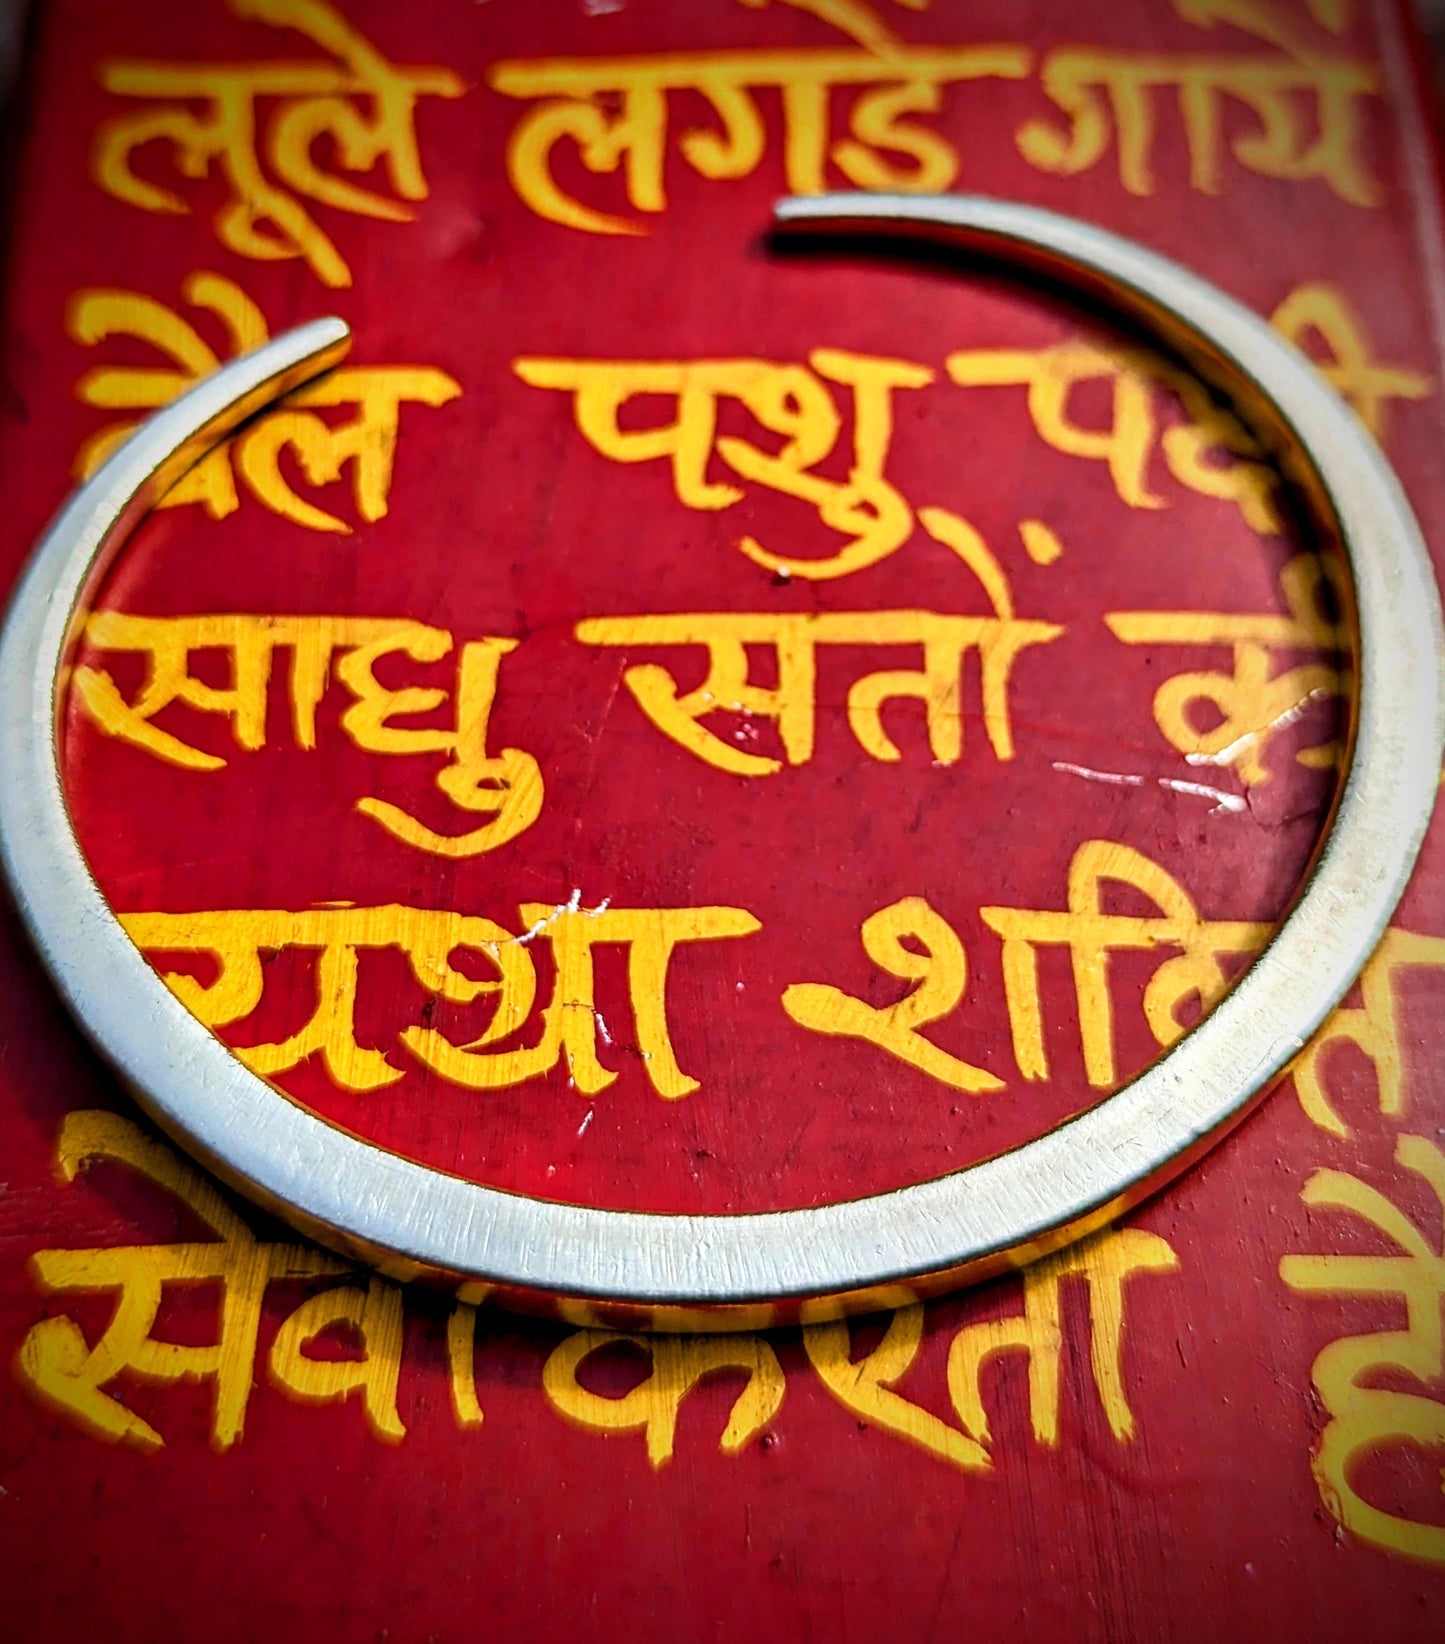 लूले लगडे गाये
बैल पशु पक्षी
साधु सतों
यथा शक्ति
सेवा करता है